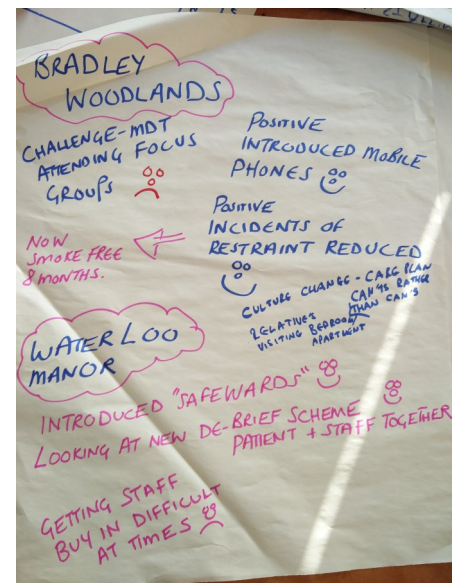 BRADLEY
WOODLANDS
CHALLENGE-MDT
ATTENDING FOCUS
GROUPS
POSITIVE
INTRODUCED MOBILE
PHONES
POSITIVE
INCIDENTS OF
RESTRAINT REDUCED
NOW
SMOKE FREE
8 MONTHS.
CULTURE CHANGE - CARE PLAN
CAN'S RATHER
THAN CAN'S
RELATIVES
VISITING BEDROOM/
APARTMENT
WATERLOO
MANOR
INTRODUCED "SAFEWARDS"
LOOKING AT NEW DE-BRIEF SCHEME
PATIENT + STAFF TOGETHER
GETTING STAFF
BUY IN DIFFICULT
AT TIMES